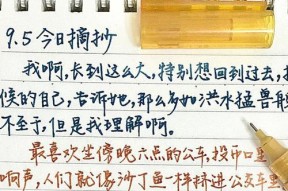 9.5 今日摘抄
我啊,长到这么大,特别想回到过去,
候的自己,告诉她,那么多如洪水猛兽般
不至于,但是我理解啊。
最喜欢坐傍晚六点的公车,投币口里
响声,人们就像沙丁鱼一样挤进公交车里